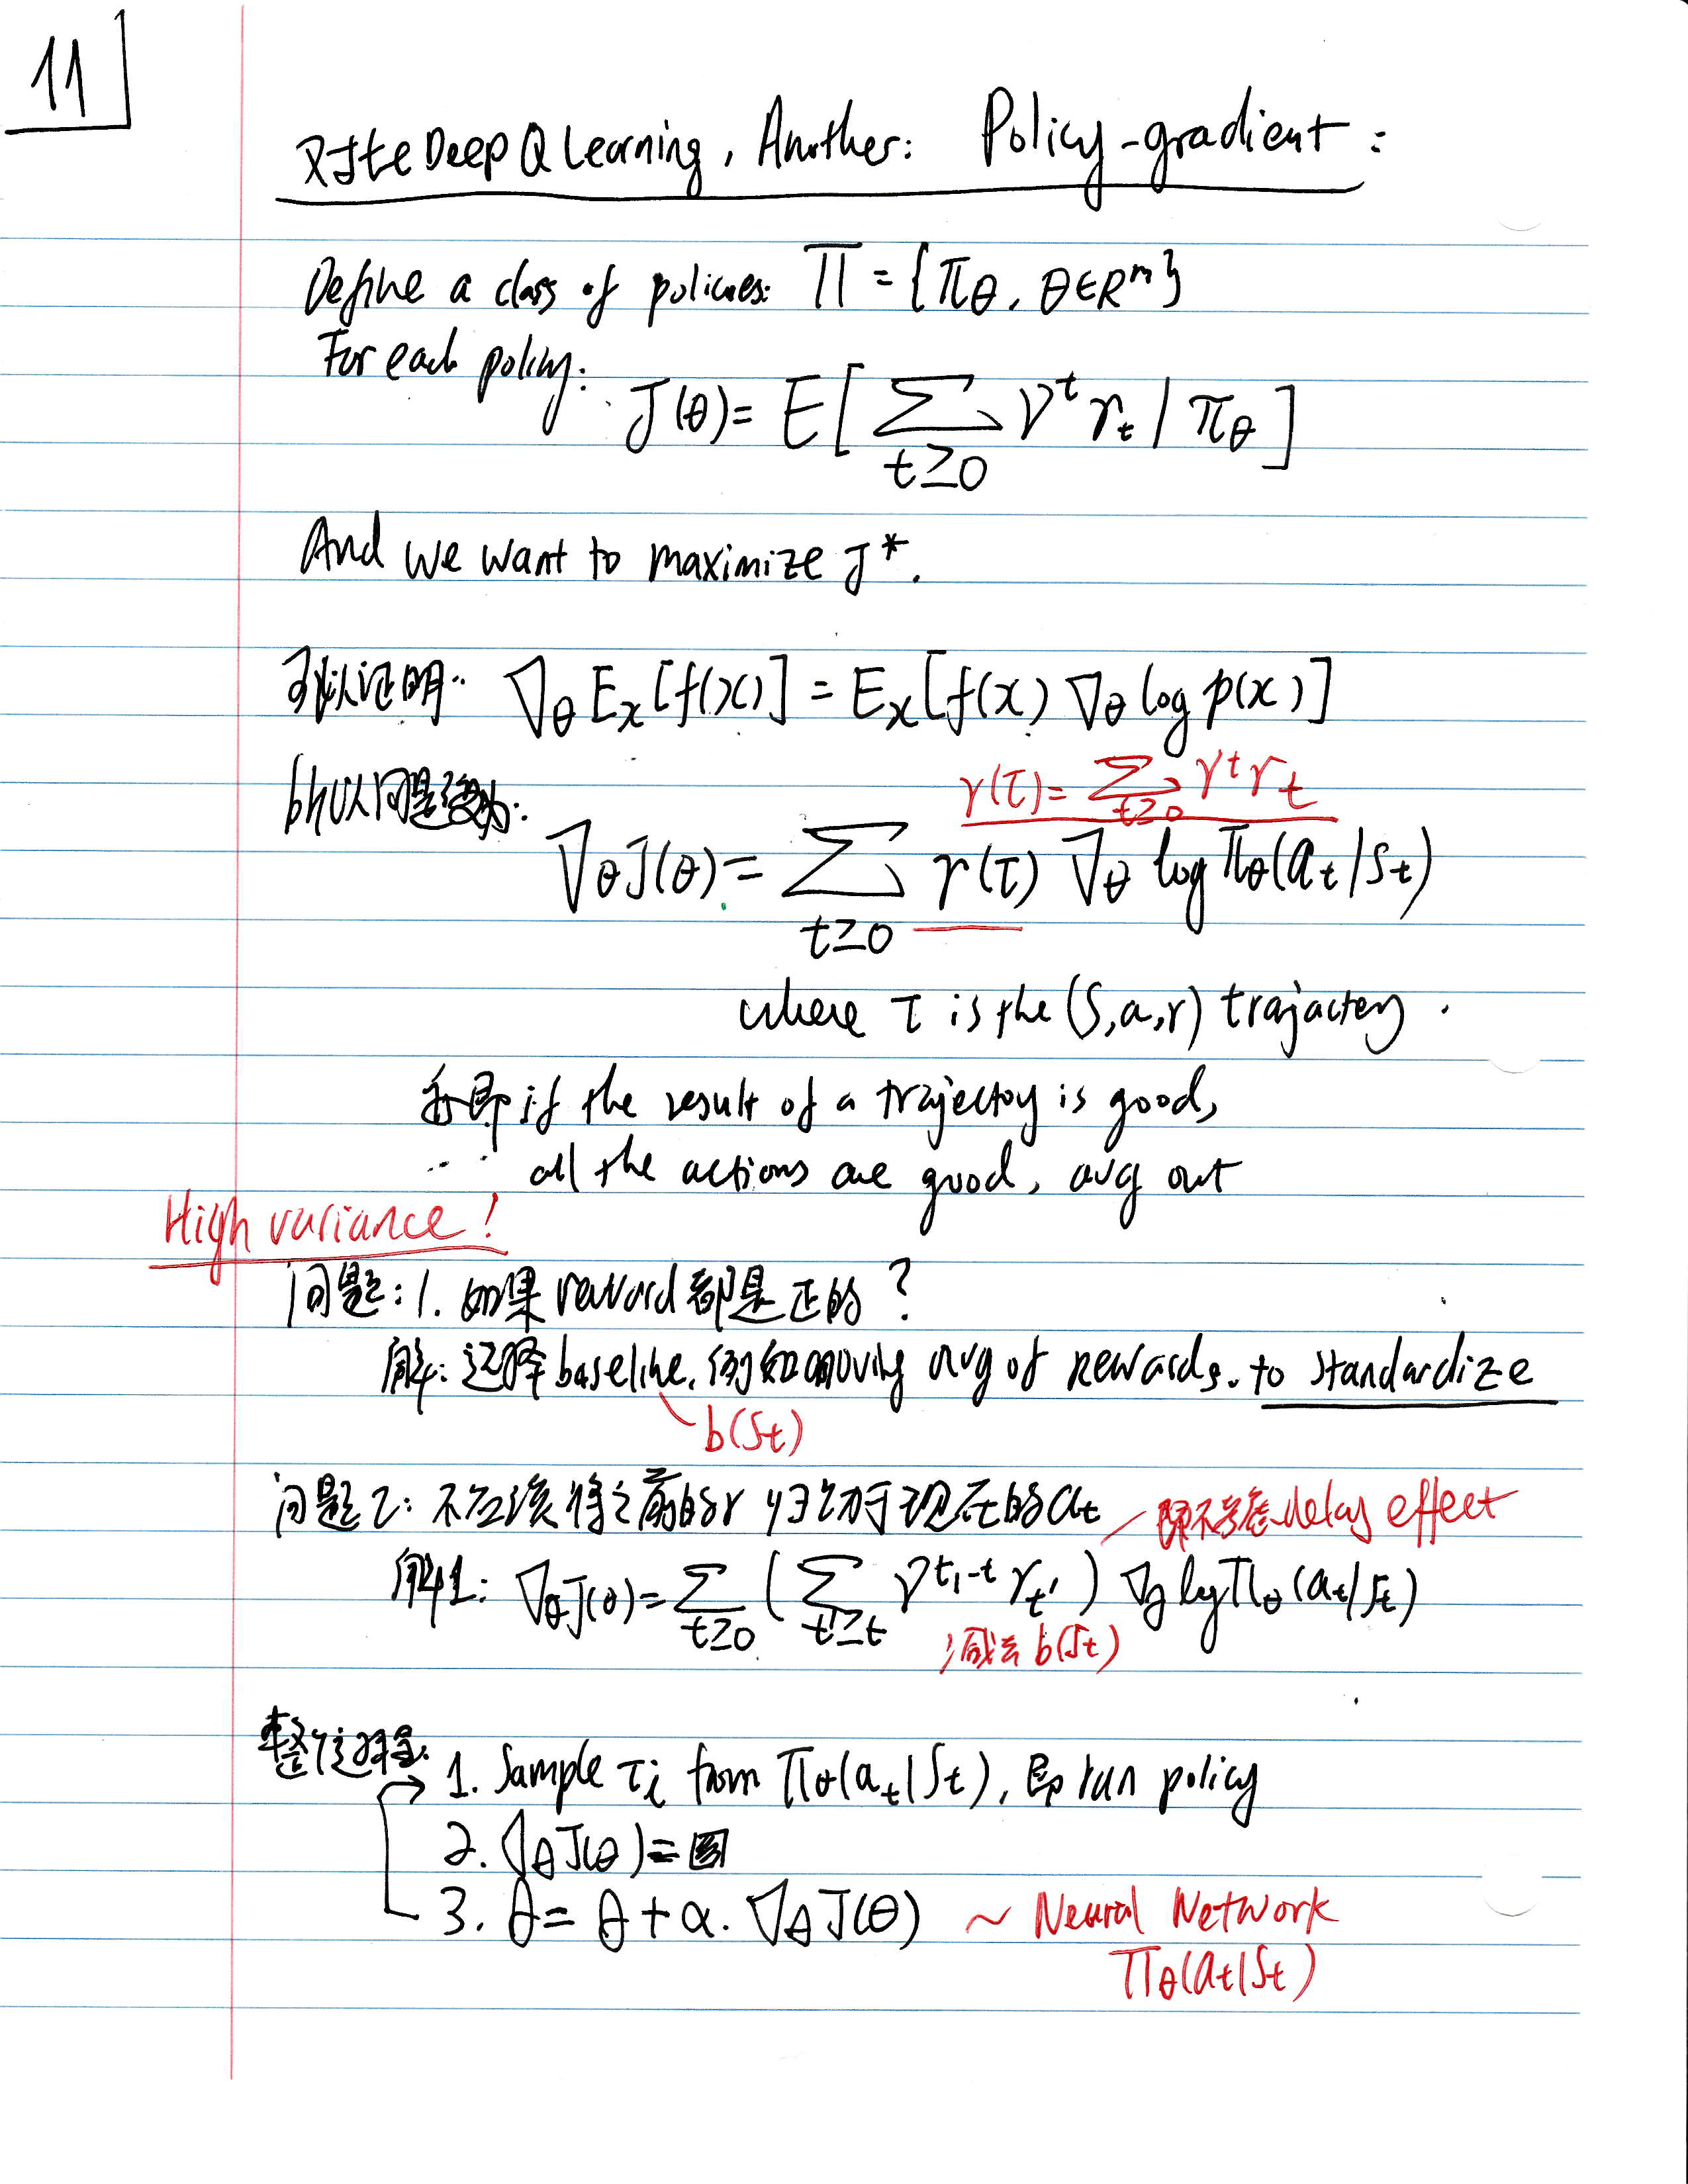 11
对比Deep Q Learning, Another: Policy-gradient:
Define a class of policies: Π = {π_θ, θ∈R^m}
For each policy:
J(θ) = E[ Σ_{t≥0} γ^t r_t | π_θ ]
And we want to maximize J*.
可以证明: ∇_θ E_x[f(x)] = E_x[f(x) ∇_θ log p(x)]
r(τ) = Σ_{t≥0} γ^t r_t
所以问题变为:
∇_θ J(θ) = Σ_{t≥0} r(τ) ∇_θ log π_θ(a_t|s_t)
where τ is the (s,a,r) trajactery.
即 if the result of a trajectoy is good,
all the actions are good, avg out
High variance!
问题: 1. 如果 reward 都是正的?
解: 选择 baseline, 例如 moving avg of rewards. to standardize
b(s_t)
问题2: 不应该将之前的r 归功于现在的a_t
即不考虑 delay effect
解1: ∇_θ J(θ) = Σ_{t≥0} ( Σ_{t'≥t} γ^{t'-t} r_{t'} ) ∇_θ log π_θ(a_t|s_t)
减去 b(s_t)
整个过程:
1. Sample τ_i from π_θ(a_t|s_t), 即 run policy
2. ∇_θ J(θ) =
3. θ = θ + α. ∇_θ J(θ) ~ Neural Network
π_θ(a_t|s_t)